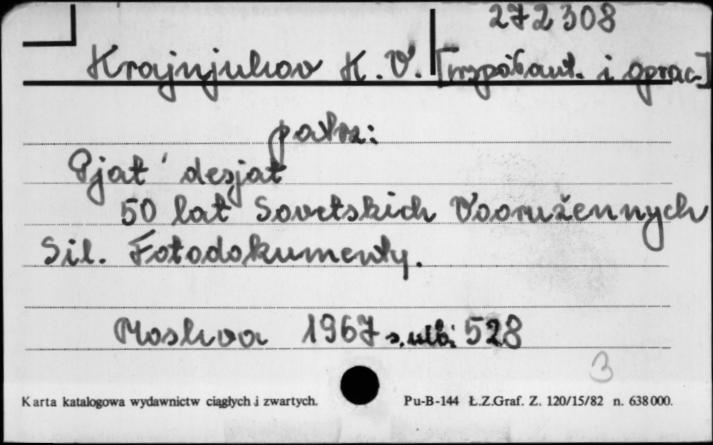 272308
Krajnjukov K. V. [współaut. i oprac.]
patrz:
Pjat' desjat
50 lat Sovetskich Vooružennych
Sil. Fotodokumenty.
Moskva 1967 s. nlb. 528
3
Karta katalogowa wydawnictw ciągłych i zwartych. Pu-B-144 Ł.Z.Graf. Z. 120/15/82 n. 638000.